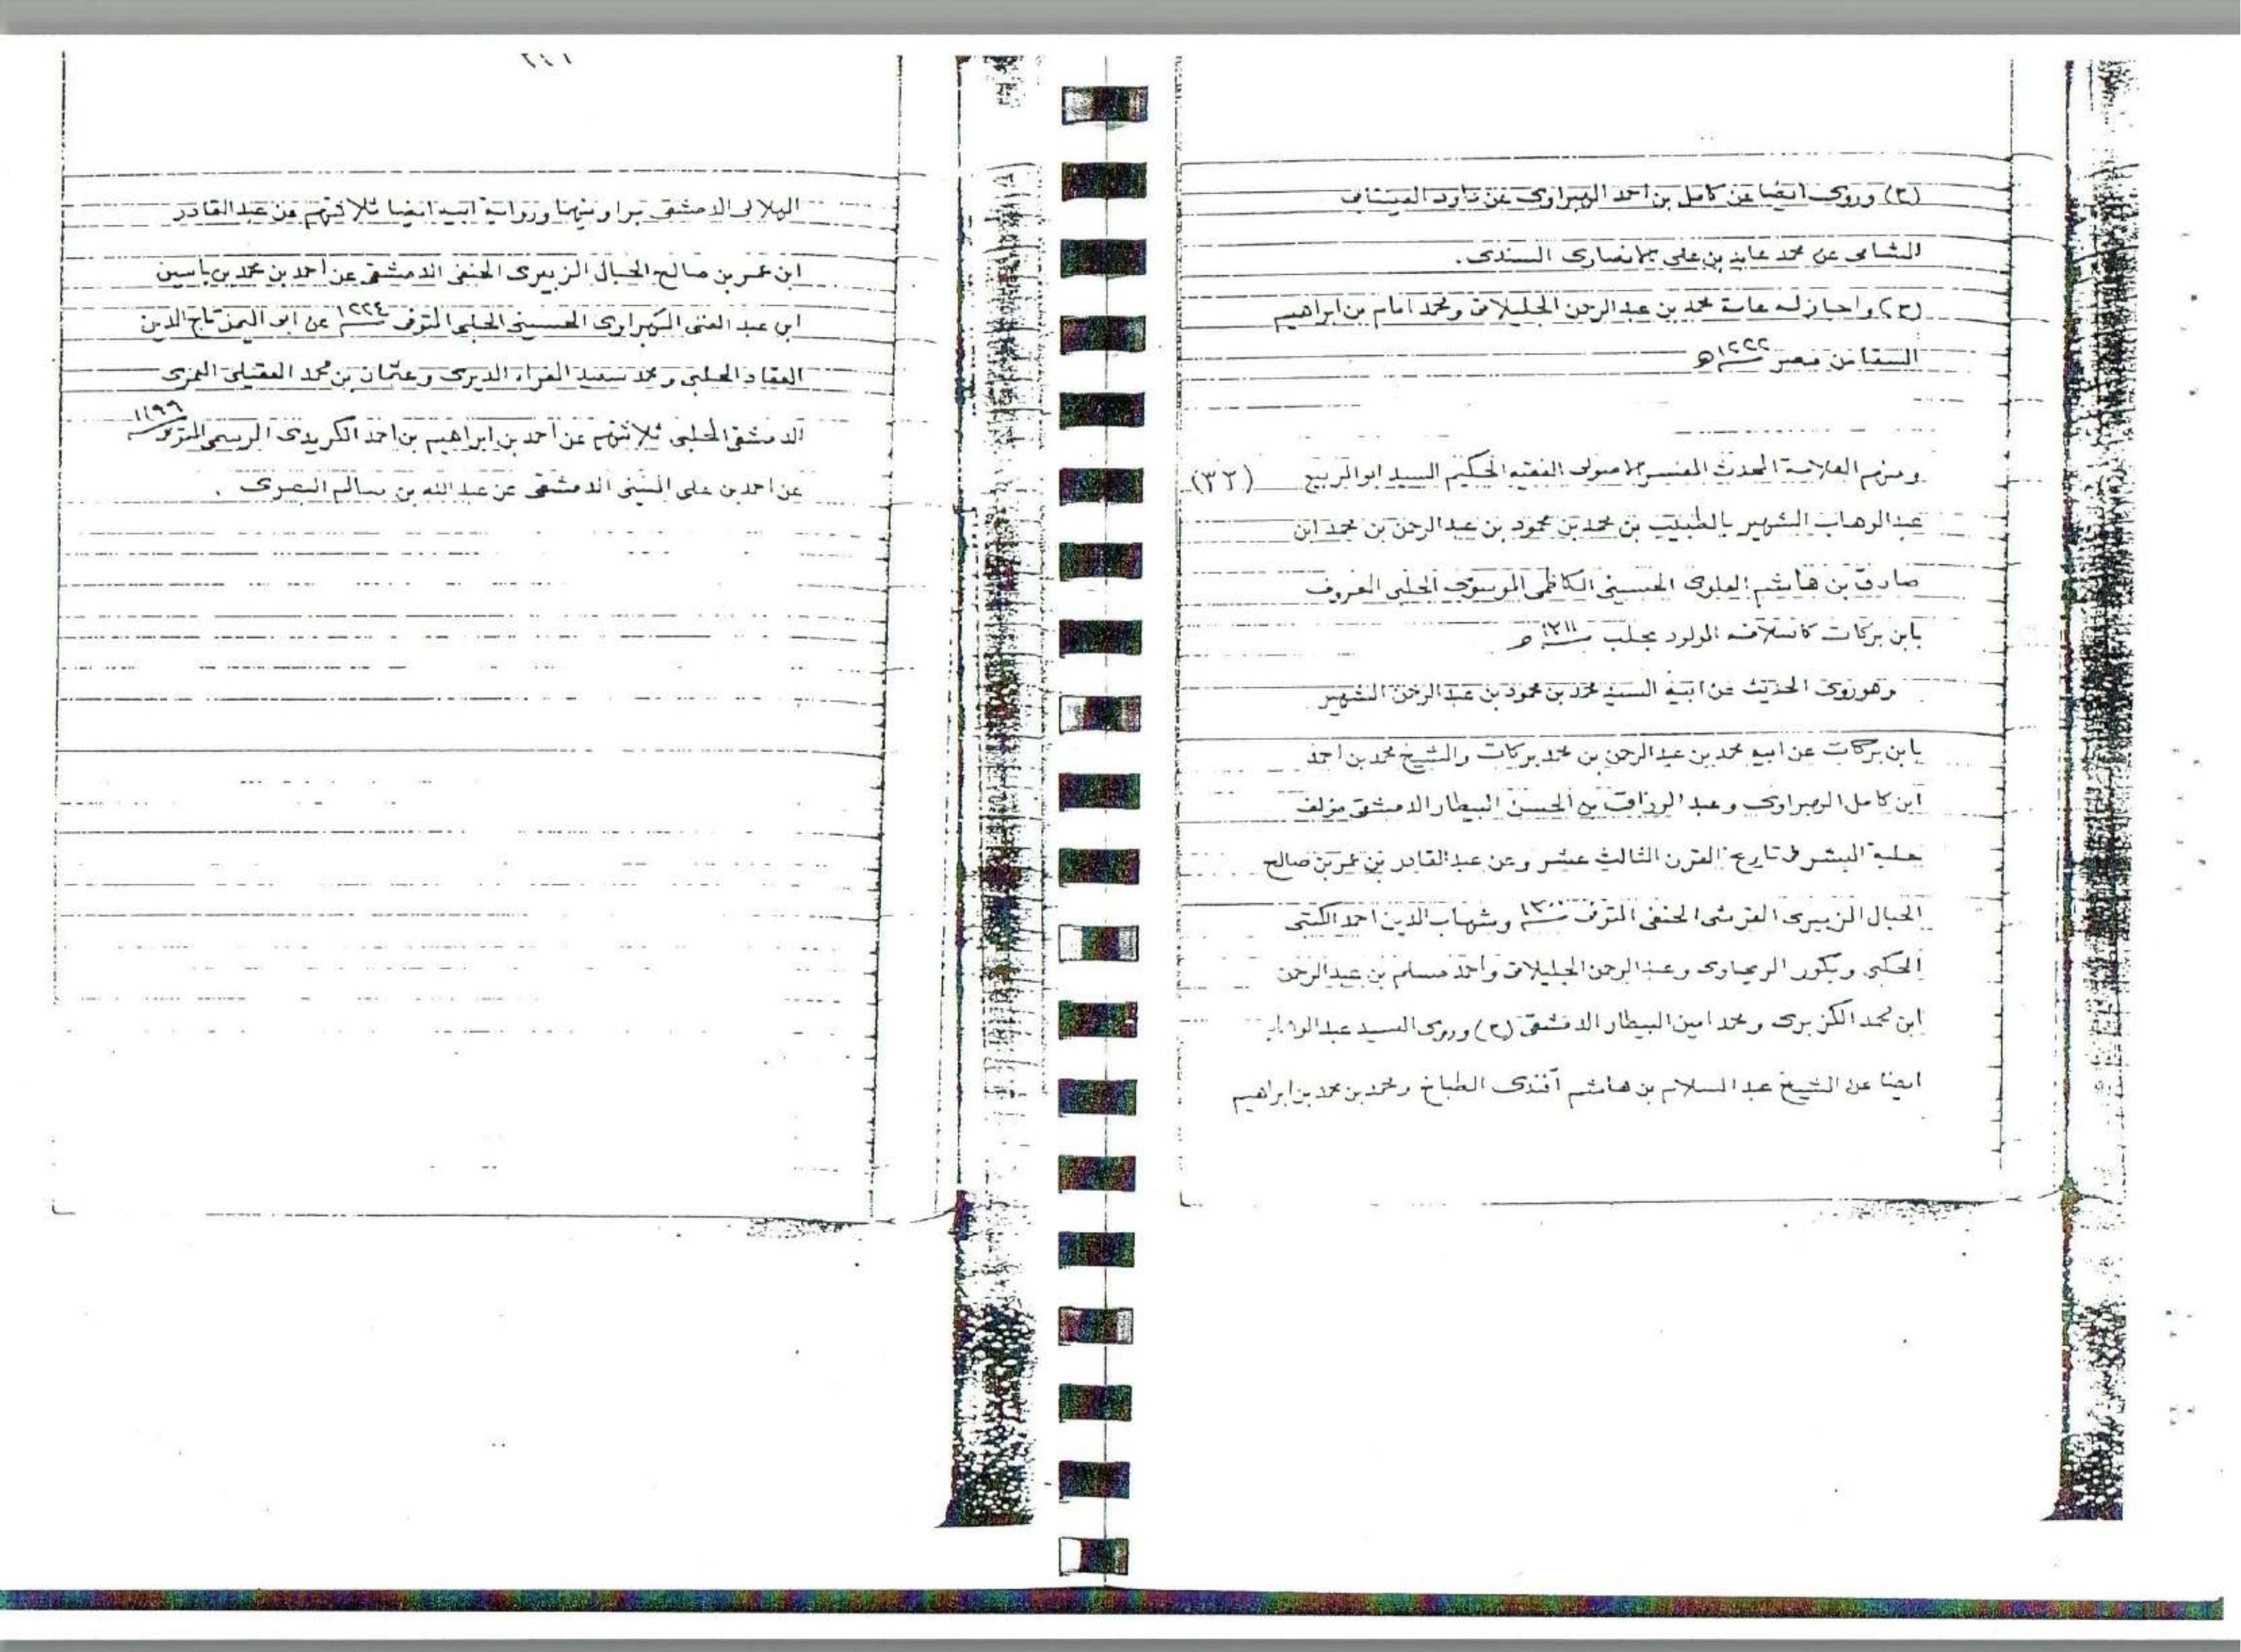 (ح) وروى ايضا عن كامل بن احمد الهبراوى عن
الشامى عن محمد عابد بن على الانصارى السندى.
(ح) واجاز له عامة محمد بن عبد الرحمن الجليلاتى ومحمد امام بن ابراهيم
السقا من مصر
ومنهم العلامة المحدث المفسر الاصولى الفقيه الحكيم السيد ابو الربيع (٣٣)
عبد الوهاب الشهير بالطبيب بن محمد بن محمود بن عبد الرحمن بن محمد ابن
صادق بن هاشم العلوى الحسينى الكاظمى الموسوى الحلبى المعروف
بابن بركات كاسلافه المولود بحلب ١٣١١ ه
وهو روى الحديث عن ابيه السيد محمد بن محمود بن عبد الرحمن الشهير
بابن بركات عن ابيه محمد بن عبد الرحمن بن محمد بركات والشيخ محمد بن احمد
ابن كامل الهبراوى وعبد الرزاق بن الحسن البيطار الدمشقى مؤلف
حلية البشر فى تاريخ القرن الثالث عشر وعن عبد القادر بن عمر بن صالح
الحبال الزبيرى القرشى الحنفى المتوفى ١٣٠٠ وشهاب الدين احمد الكتبى
وبكور الريحاوى وعبد الرحمن الجليلاتى واحمد مسلم بن عبد الرحمن
ابن محمد الكزبرى ومحمد امين البيطار الدمشقى (ح) وروى السيد عبد الوهاب
ايضا عن الشيخ عبد السلام بن هاشم آفندى الطباخ ومحمد بن محمد بن ابراهيم
٢٤١
الهلالى الدمشقى ورواية ابيه ايضا ثلاثتهم عن عبد القادر
ابن عمر بن صالح الحبال الزبيرى الحنفى الدمشقى عن احمد بن محمد بن ياسين
ابن عبد الغنى الهبراوى الحسينى الحلبى المتوفى ١٢٢٤ عن ابو اليمن تاج الدين
العقاد الحلبى ومحمد سعيد الفراء الديرى وعثمان بن محمد العقيلى العمرى
الدمشقى الحلبى ثلاثتهم عن احمد بن ابراهيم بن احمد الكريدى الرسمى المتوفى ١١٩٦
عن احمد بن على المنينى الدمشقى عن عبد الله بن سالم البصرى .